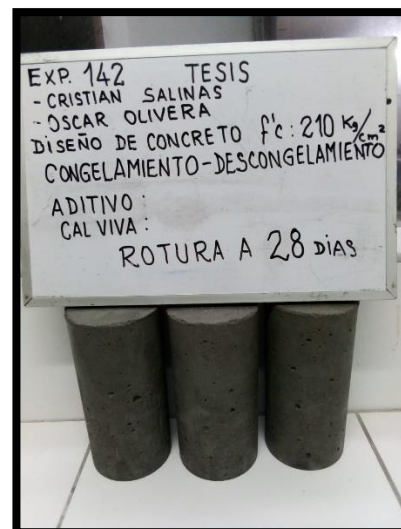 EXP. 142 TESIS
- CRISTIAN SALINAS
- OSCAR OLIVERA
DISEÑO DE CONCRETO f'c : 210 Kg/cm²
CONGELAMIENTO-DESCONGELAMIENTO
ADITIVO :
CAL VIVA :
ROTURA A 28 DIAS